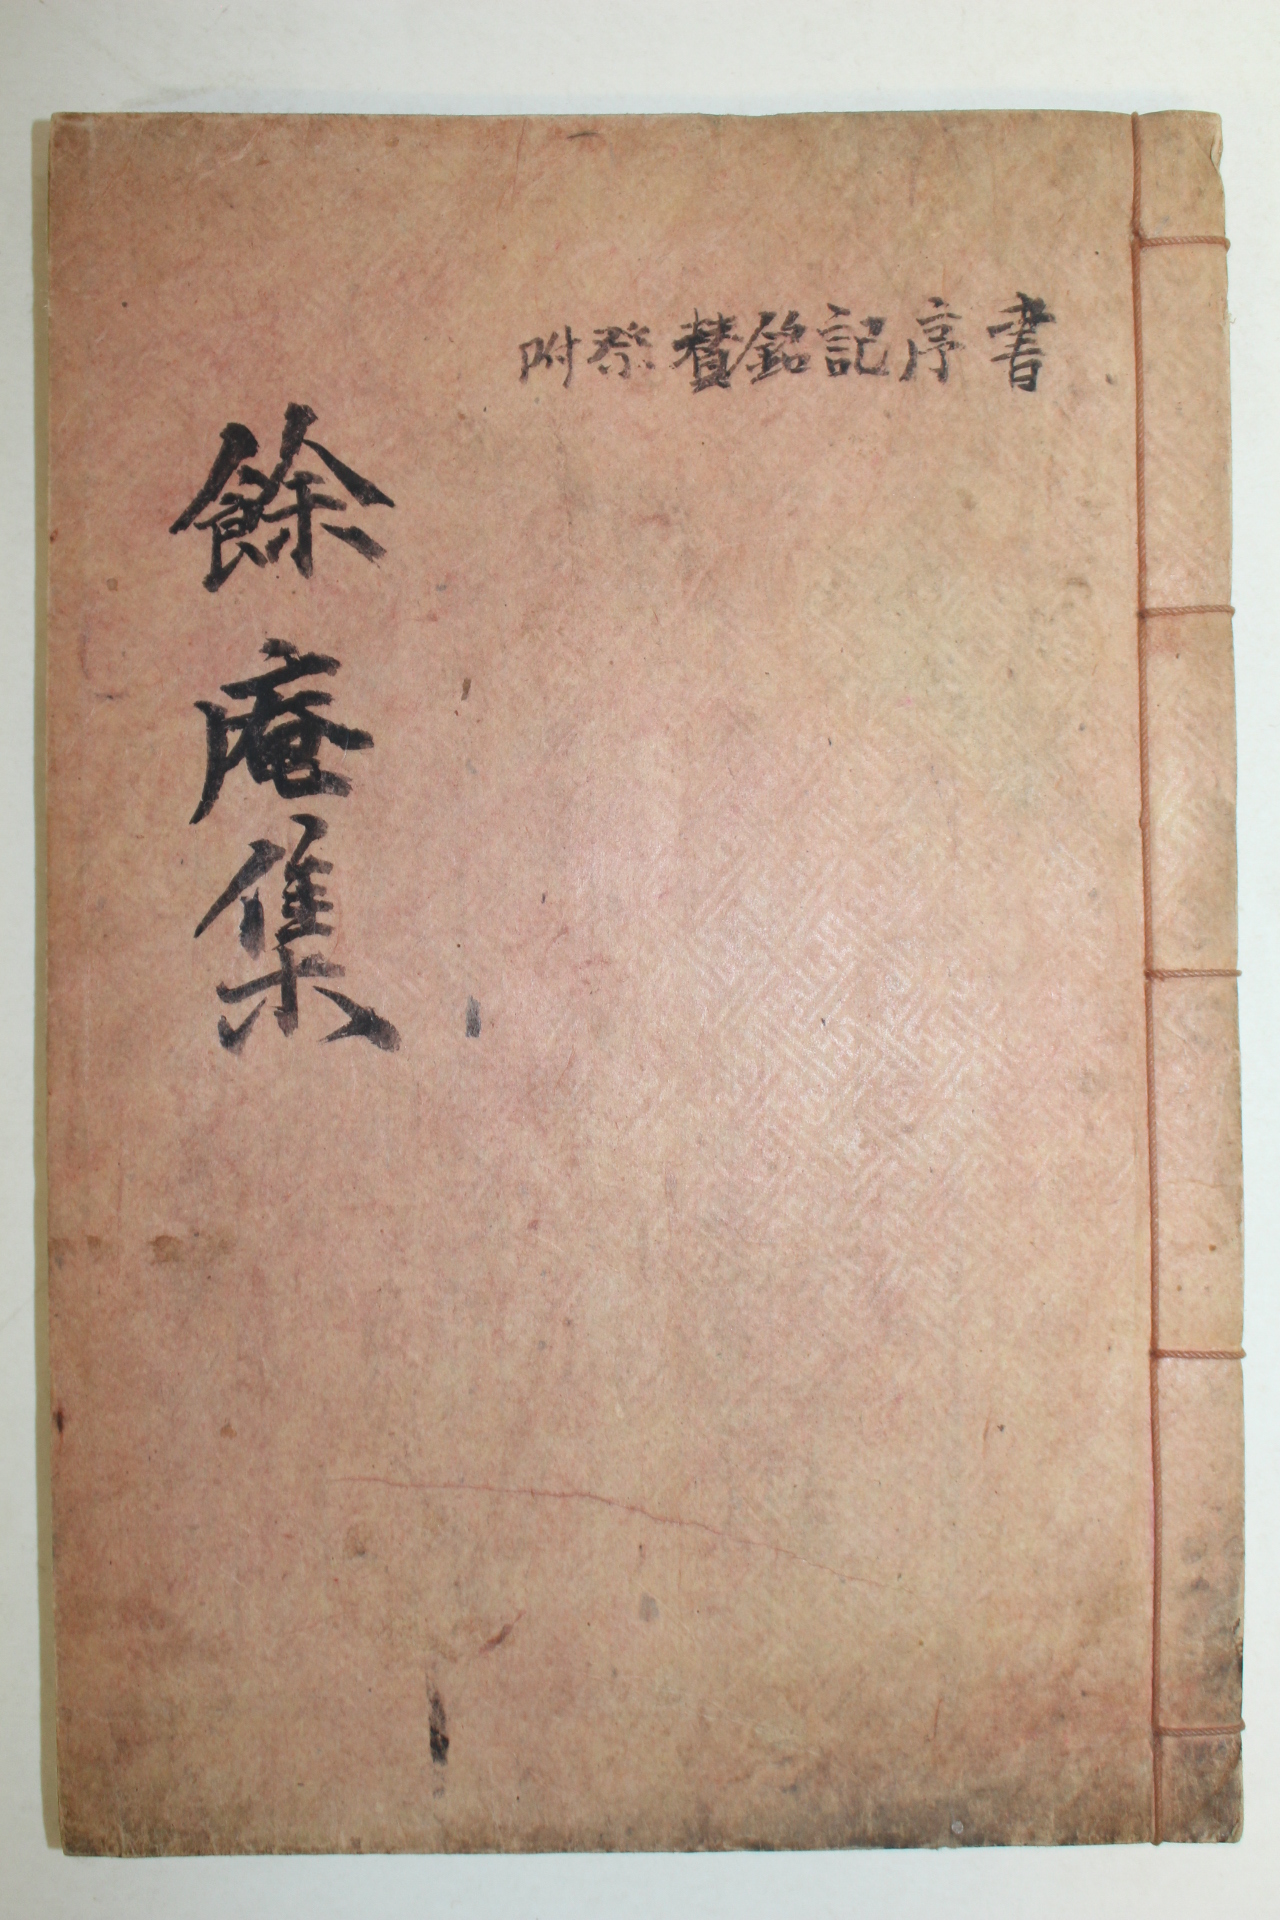 書序記銘贊祭附
餘庵集